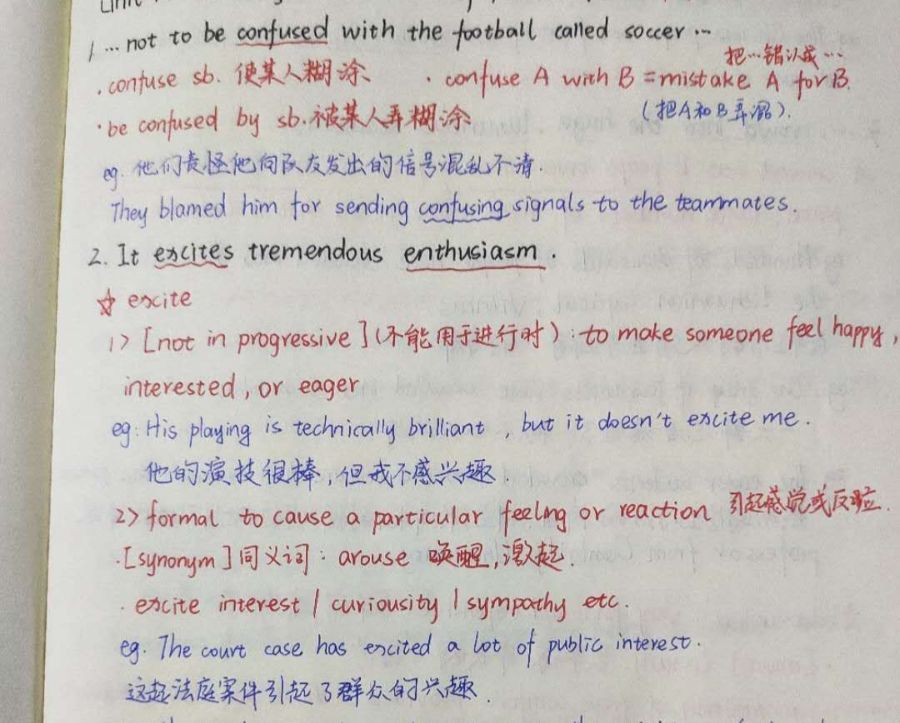 1. ... not to be confused with the football called soccer ...
把...错认成...
· confuse sb. 使某人糊涂 · confuse A with B = mistake A for B.
· be confused by sb. 被某人弄糊涂 (把A和B弄混).
eg. 他们责怪他向队友发出的信号混乱不清.
They blamed him for sending confusing signals to the teammates.
2. It excites tremendous enthusiasm.
☆ excite
1> [not in progressive] (不能用于进行时): to make someone feel happy,
interested, or eager
eg: His playing is technically brilliant, but it doesn't excite me.
他的演技很棒,但我不感兴趣
2> formal to cause a particular feeling or reaction 引起感觉或反应.
·[synonym] 同义词: arouse 唤醒,激起.
· excite interest / curiousity / sympathy etc.
eg. The court case has excited a lot of public interest.
这起法庭案件引起了群众的兴趣.